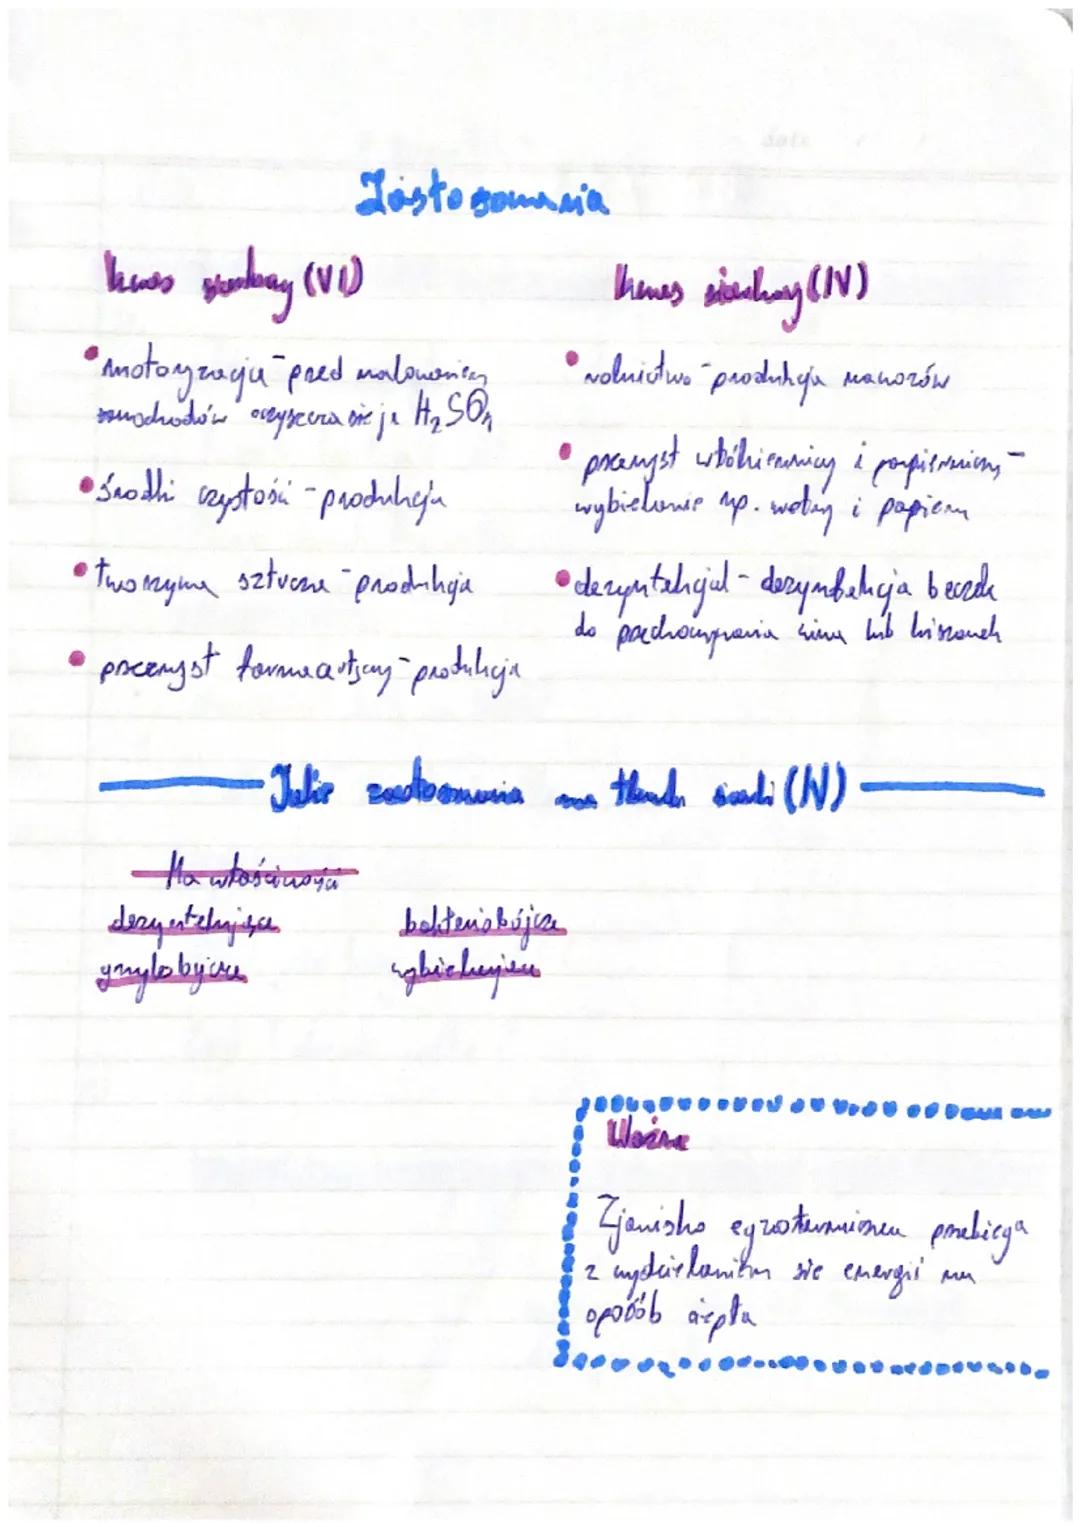 Zastosowania
kwas siarkowy (VI)
• motoryzacja - pred malowaniem
samochodów oczyszcza sie je H₂SO₄
• środki czystości - produkcja
• tworzyma sztuczne - produkcja
• przemysł farmaceutyczny - produkcja
kwas siarkowy (IV)
• rolnictwo - produkcja nawozów
• przemysł włókienniczy i papierniczy -
wybielanie np. wełny i papieru
• dezynfekcja - dezynfekcja beczek
do przechowywania wina lub kiszonek
Jakie zastosowania ma tlenek siarki (IV)
Ma właściwości
dezynfekujące
bakteriobójcze
grzybobójcze
wybielające
Ważne
Zjawisko egzotermiczne przebiega
z wydzielaniem sie energii na
sposób ciepła